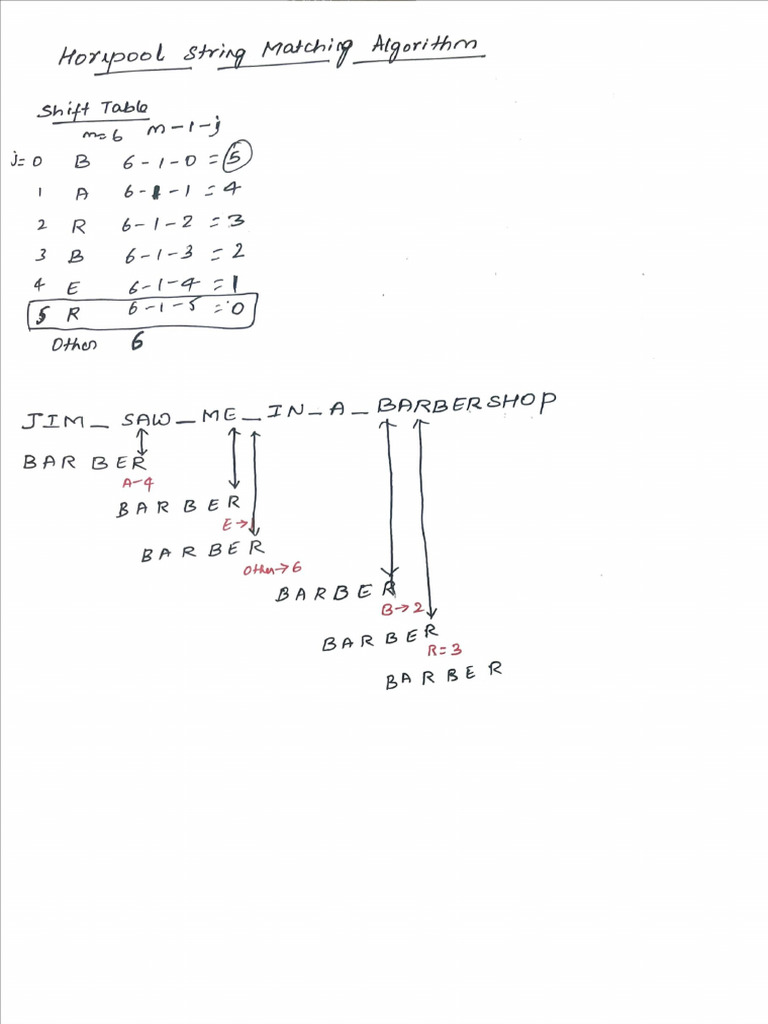 Horspool String Matching Algorithm
Shift Table
m=6 m-1-j
j=0 B 6-1-0=5
1 A 6-1-1=4
2 R 6-1-2=3
3 B 6-1-3=2
4 E 6-1-4=1
5 R 6-1-5=0
Other 6
JIM_SAW_ME_IN_A_BARBERSHOP
BARBER
A-4
BARBER
E→1
BARBER
Other→6
BARBER
B→2
BARBER
R=3
BARBER